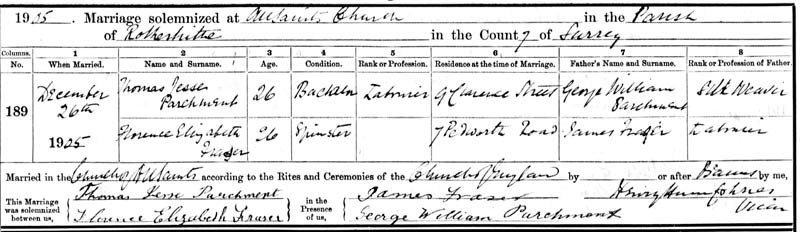 1925. Marriage solemnized at All Saints Church in the Parish
of Rotherhithe in the County of Surrey
Columns. 1 2 3 4 5 6 7 8
No. When Married. Name and Surname. Age. Condition. Rank or Profession. Residence at the time of Marriage. Father's Name and Surname. Rank or Profession of Father.
189 December 26th 1925 Thomas Jesse Parchment 26 Bachelor Labourer 9 Clarence Street George William Parchment Silk Weaver
Florence Elizabeth Frazer 26 Spinster Labourer 7 Pedworth Road James Frazer Labourer
Married in the Church of All Saints according to the Rites and Ceremonies of the Church of England by or after Banns by me,
This Marriage was solemnized between us, Thomas Jesse Parchment in the Presence of us, James Fraser Henry
Florence Elizabeth Fraser George William Parchment Vicar